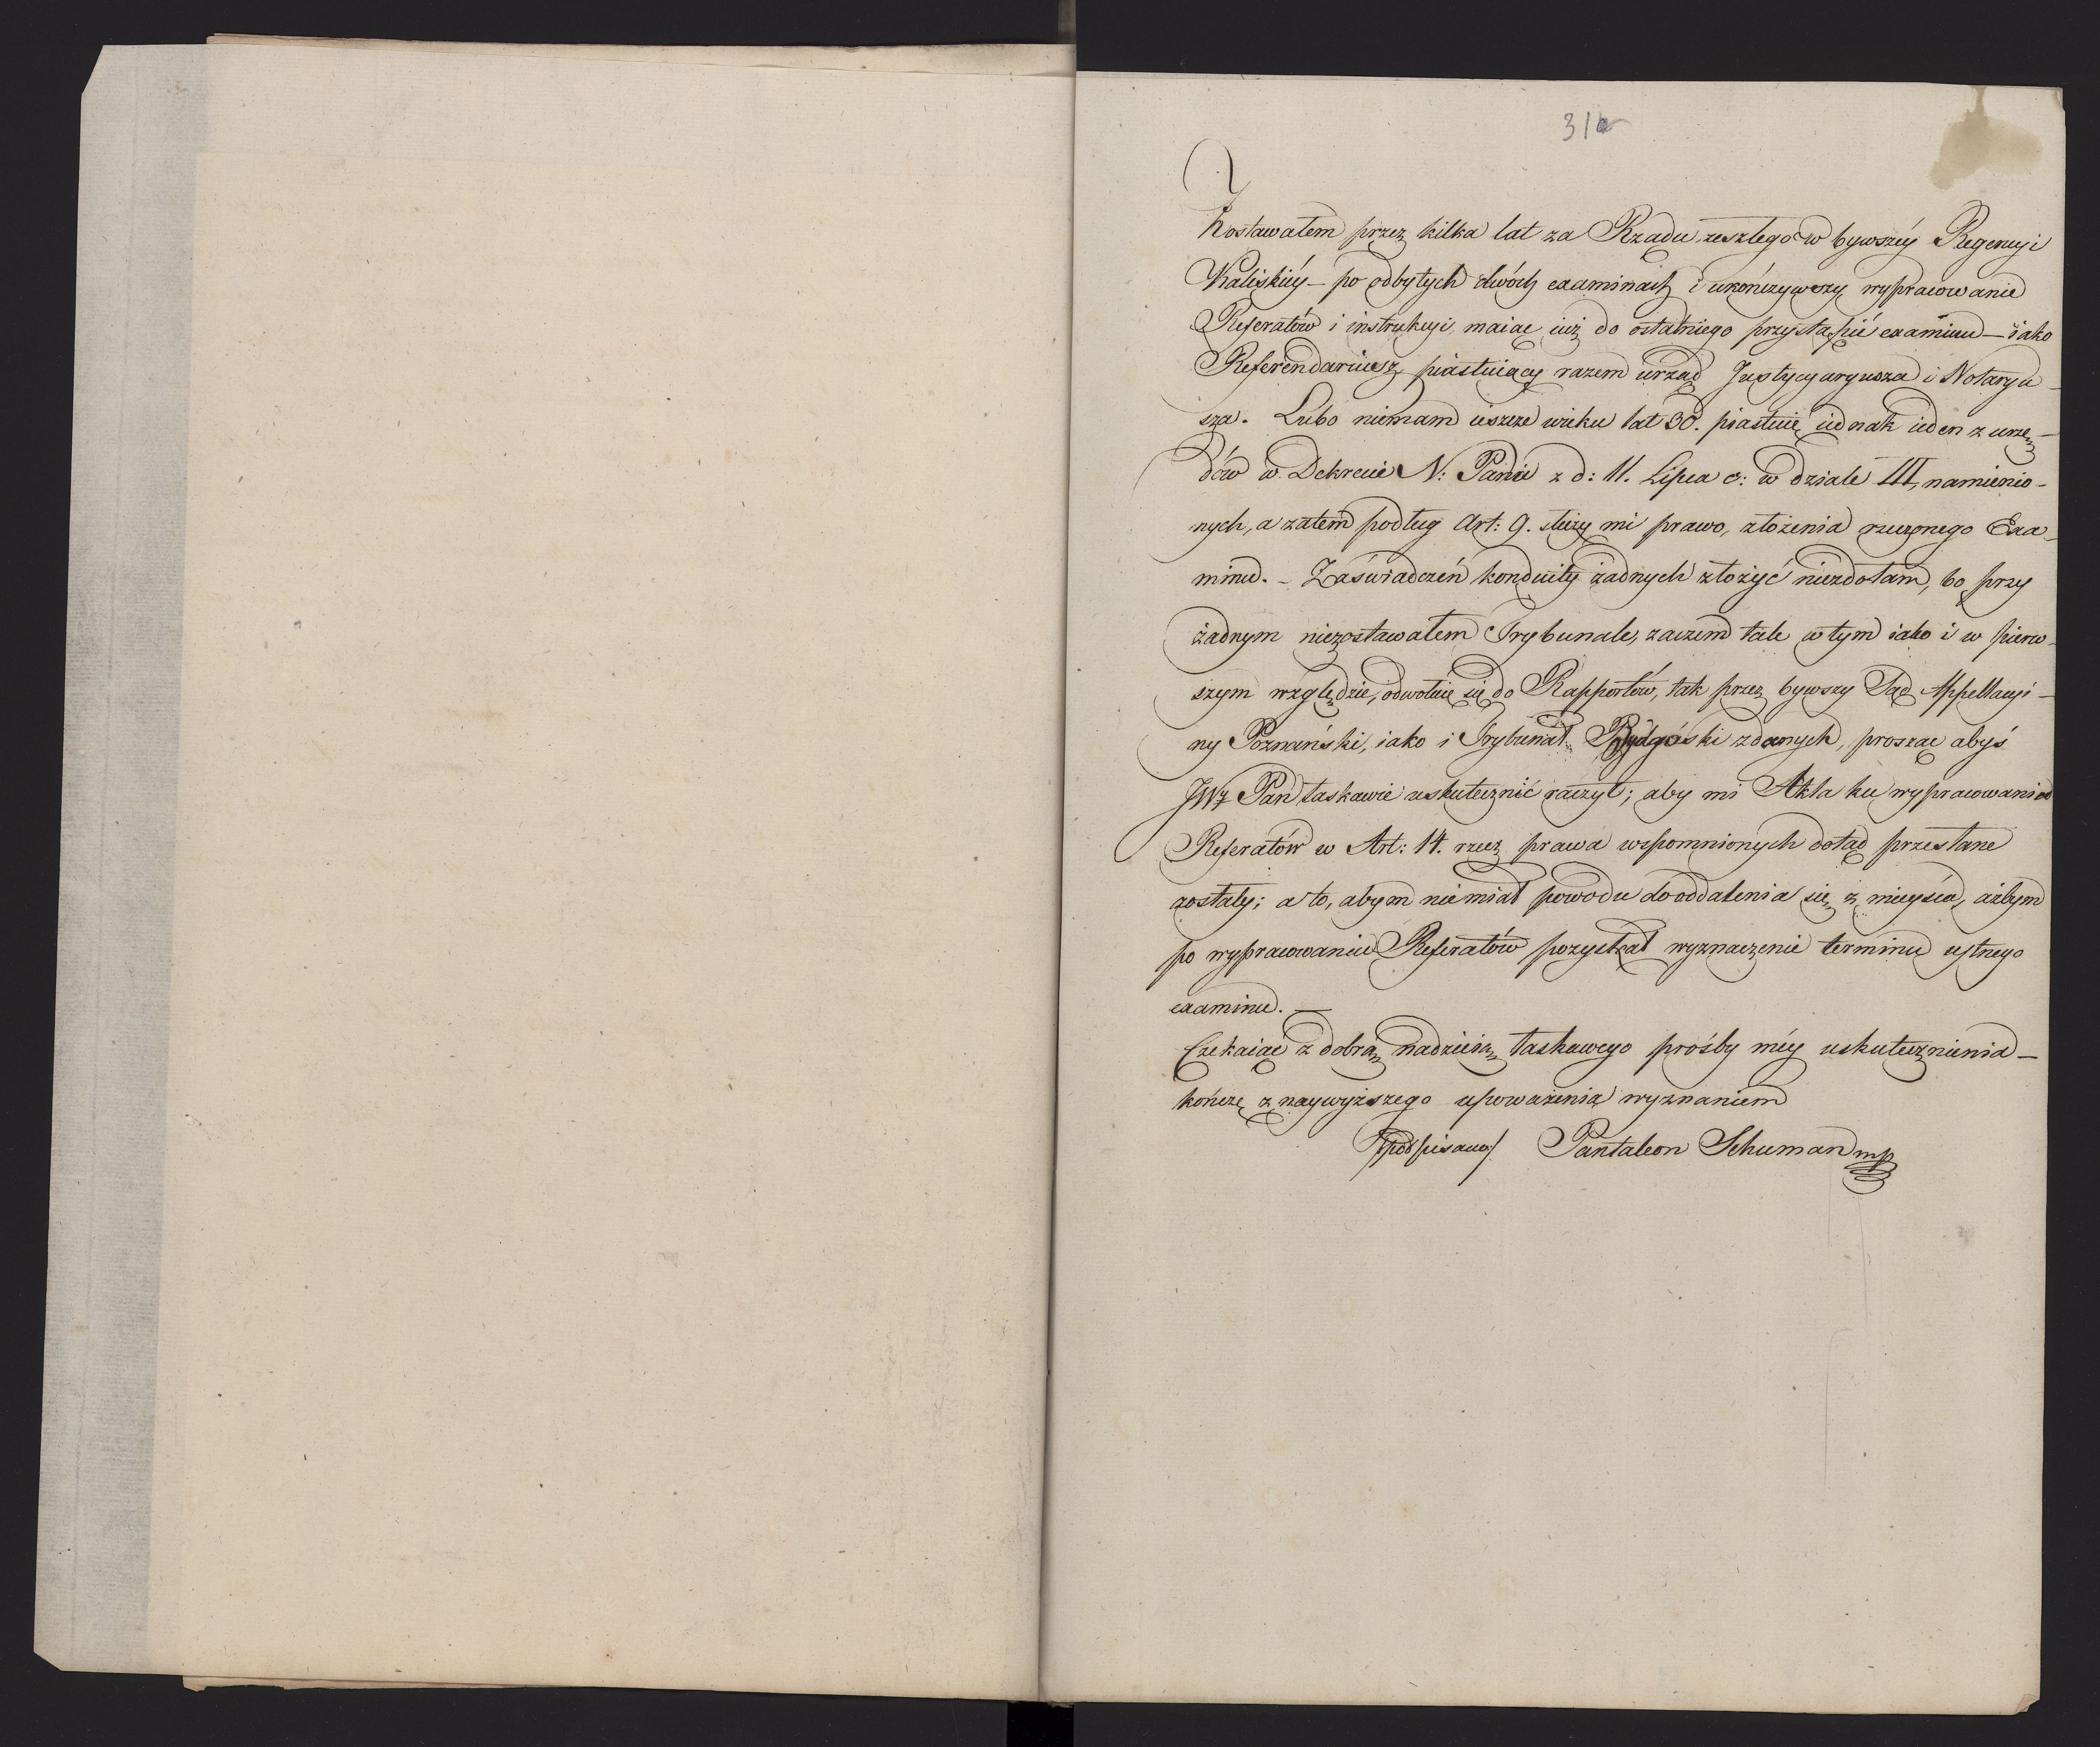 31
Zostawałem przez kilka lat za Rządu zeszłego w bywszéy Regencyi
Kaliskiéy – po odbytych dwóch examinach i ukończywszy wypracowanie
Referatów i instrukcyi, maiąc iuż do ostatniego przystąpić examinu – iako
Referendariusz, piastuiący razem urząd Justycyaryusza i Notaryu-
sza. Lubo niemam ieszcze wieku lat 30. piastuię iednak ieden z urzę-
dów w Dekrecie N: Pana z d: 11. Lipca c: w dziale III, namienio-
nych, a zatem podług Art: 9. służy mi prawo, złożenia rzeczonego Exa-
minu. – Zaświadczeń konduity żadnych złożyć niezdołam, bo przy
żadnym niezostawałem Trybunale, zaczem tak w tym iako i w pierw-
szym względzie, odwołuię się do Rapportów, tak przez bywszy Sąd Appellacyi-
ny Poznański, iako i Trybunał Bydgoski zdanych, prosząc abyś
JWz Pan łaskawie uskutecznić raczył; aby mi Akta ku wypracowaniu
Referatów w Art: 14. rzecz. prawa wspomnionych dotąd przesłane
zostały; a to, abym niemiał powodu do oddalenia się z mieysca, ażbym
po wypracowaniu Referatów pozyskał wyznaczenie terminu ustnego
examinu. —
Czekaiąc z dobrą nadzieią łaskawego prośby méy uskutecznienia –
kończę z naywyższego upoważenia wyznaniem
/podpisano/ Pantaleon Schuman mp